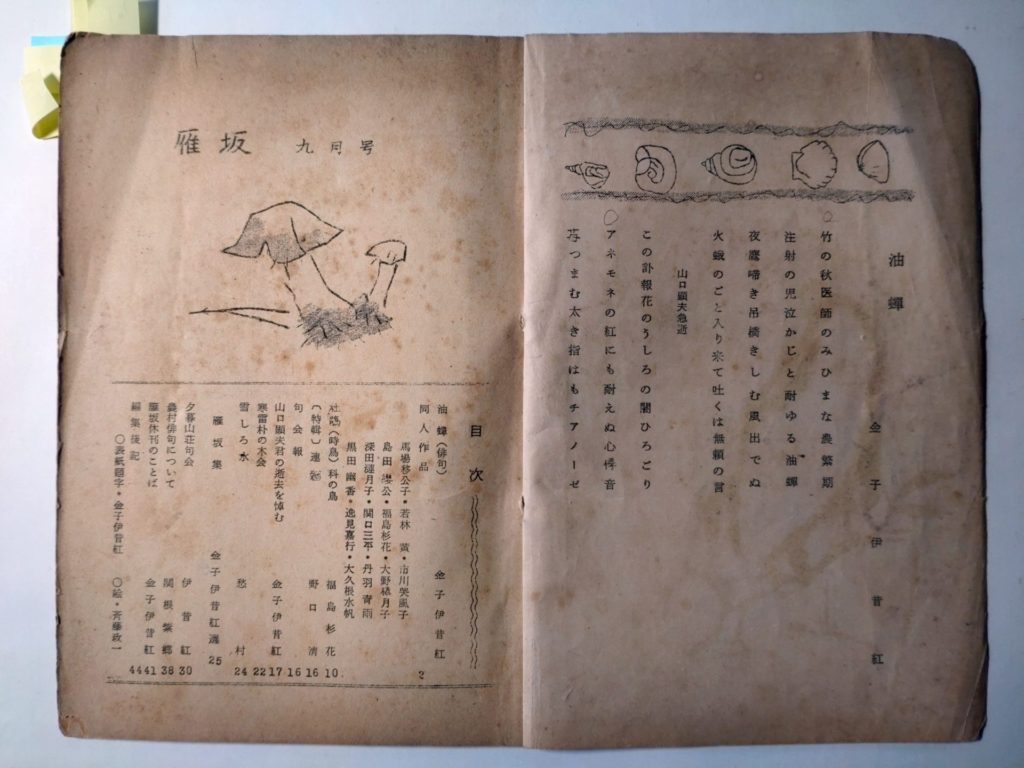 雁坂 九月号
目次
油蝉(俳句) 金子伊昔紅
同人作品 2
馬場移公子・若林 黄・市川哭風子
島田璎公・福島杉花・大野緑月子
深田漣月子・関口三平・丹羽青雨
黒田幽香・逸見嘉行・大久根水帆
(時鳥)科の鳥 福島杉花 10
(特輯)連 野口清 16
句会報 16
山口顕夫君の逝去を悼む 金子伊昔紅 17
寒雷朴の木会 22
雪しろ水 愁村 24
雁坂集 金子伊昔紅選 25
夕暮山荘句会 伊昔紅 30
農村俳句について 関根繁郷 38
雁坂休刊のことば 金子伊昔紅 41
編集後記 44
〇表紙題字・金子伊昔紅 〇絵・斉藤政一
油蝉
金子伊昔紅
竹の秋医師のみひまな農繁期
注射の児泣かじと耐ゆる油蝉
夜鷹啼き吊橋きしむ風出でぬ
火蛾のごと入り来て吐くは無頼の言
山口顕夫急逝
この訃報花のうしろの闇ひろごり
アネモネの紅にも耐えぬ心悸音
苺つまむ太き指はもチアノーゼ